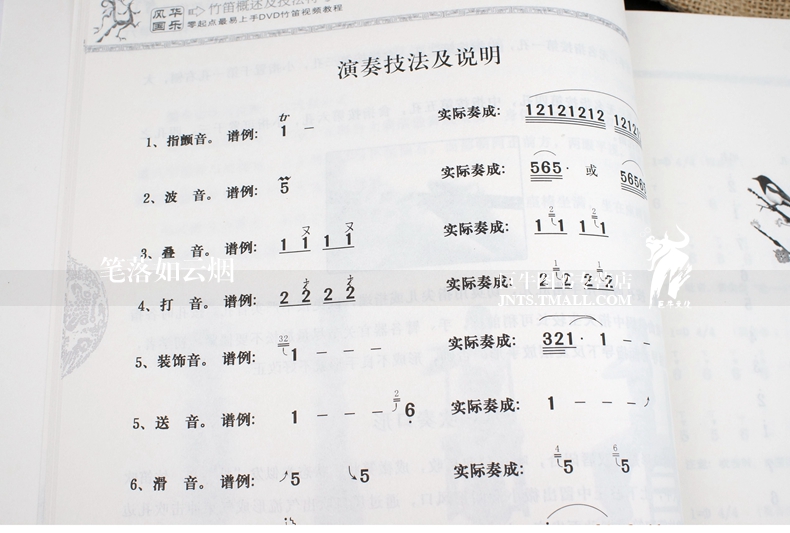 风华国乐
竹笛概述及技法
零起点最易上手DVD竹笛视频教程
演奏技法及说明
1、指颤音。谱例: 1 – 实际奏成: 12121212
2、波 音。谱例: 5 实际奏成: 565· 或 56565
3、叠 音。谱例: 1 1 1 1 实际奏成: 1 1 1 1
4、打 音。谱例: 2 2 2 2 实际奏成: 2 2 2 2
5、装饰音。谱例: 32 1 – – – 实际奏成: 321· 1 – –
5、送 音。谱例: 1 – – – 2 6 实际奏成: 1 – – –
6、滑 音。谱例: 5 5 实际奏成: 4 5 6 5
笔落如云烟
JNTS.TMALL.COM